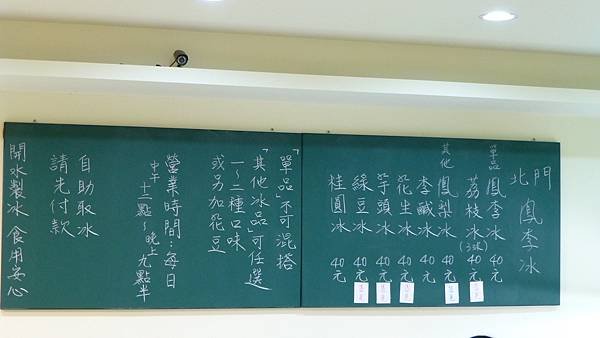 北門 鳳李冰
單品 鳳李冰 40元
荔枝冰(3球) 40元
其他 鳳梨冰 40元
李鹹冰 40元
花生冰 40元
芋頭冰 40元
綠豆冰 40元
桂圓冰 40元
「單品」不可混搭
「其他冰品」可任選
一～二種口味
或另加花豆
營業時間：每日
中午十二點～晚上九點半
自助取冰
請先付款
開水製冰 食用安心